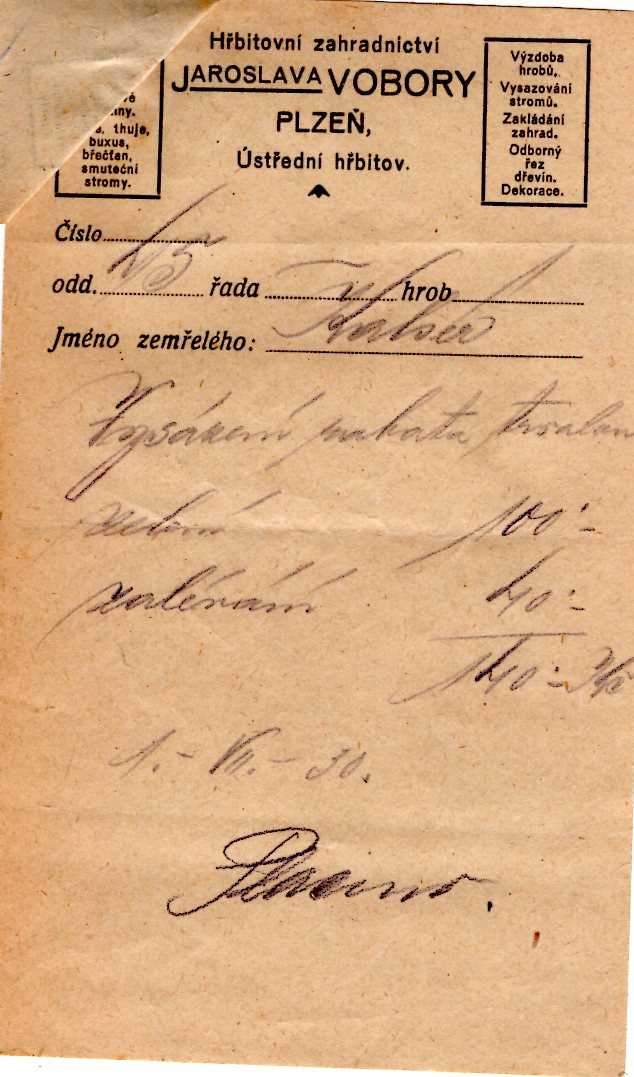 Hřbitovní zahradnictví
JAROSLAVA VOBORY
PLZEŇ,
Ústřední hřbitov.
thuje,
buxus,
břečťan,
smuteční
stromy.
Výzdoba
hrobů,
Vysazování
stromů.
Zakládání
zahrad.
Odborný
řez
dřevin.
Dekorace.
Číslo
odd. 45 řada hrob
Jméno zemřelého:
Vysázení
100·-
zalévání 40·-
140·- Kč
1.- VII.- 30.
Placeno.